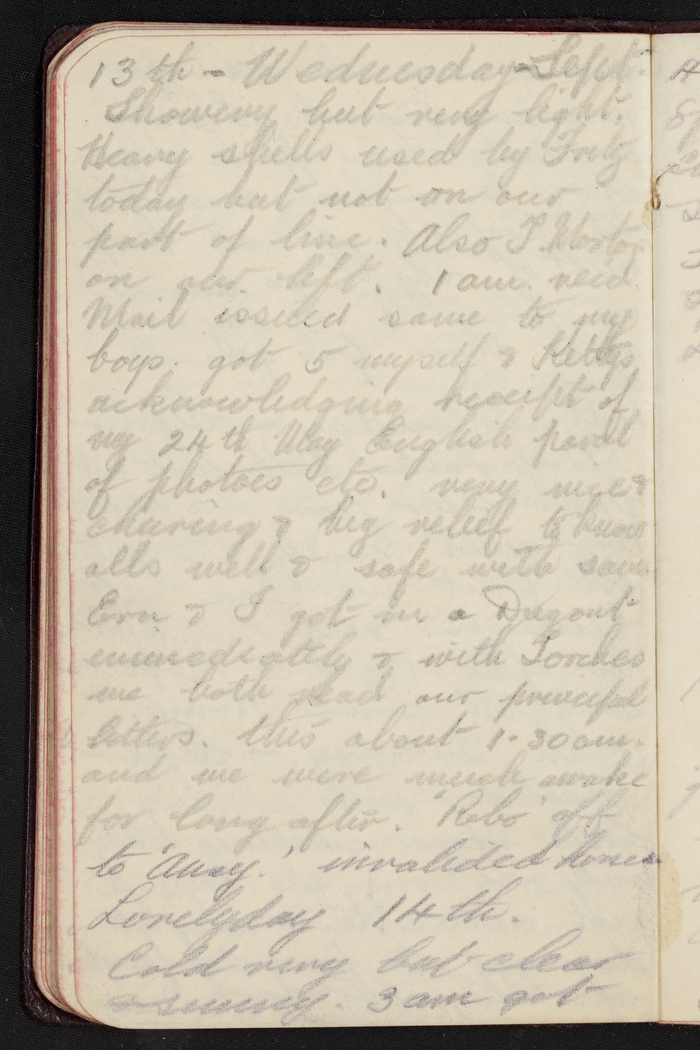 13th - Wednesday - Sept.
Showery but very light.
Heavy shells used by Fritz
today but not on our
part of line. Also T. Mortar
on our left. 1 am. recd
Mail issued same to my
boys. got 5 myself &
acknowledging receipt of
my 24th May English parcel
of photoes etc. very nice &
cheering & big relief to know
alls well & safe with same
Ern & I got in a Dugout
immediately & with Torches
we both read our
letters. this about 1-30 am.
and we were much awake
for long after. 'Robo' off
to 'Ausy.' invalided home
Lovelyday 14th.
Cold very but clear
& sunny. 3 am got